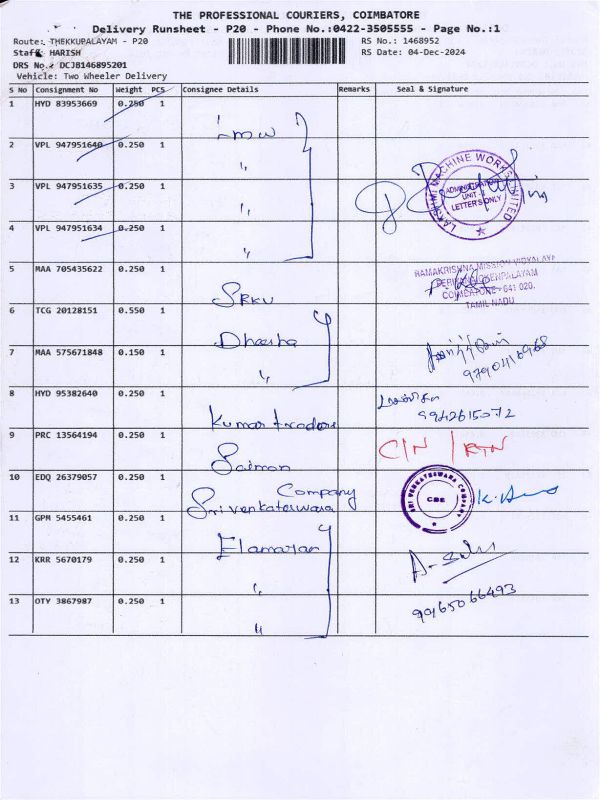 THE PROFESSIONAL COURIERS, COIMBATORE
Delivery Runsheet - P20 - Phone No.:0422-3505555 - Page No.:1
Route: THEKKUPALAYAM - P20
RS No.: 1468952
Staff: HARISH
RS Date: 04-Dec-2024
DRS No.: DCJB146895201
Vehicle: Two Wheeler Delivery
S No Consignment No Weight PCS Consignee Details Remarks Seal & Signature
1 HYD 83953669 0.250 1 Lmw
2 VPL 947951640 0.250 1 "
3 VPL 947951635 0.250 1 "
4 VPL 947951634 0.250 1 "
LAKSHMI MACHINE WORKS LIMITED
ADMINISTRATION
UNIT - II
LETTER'S ONLY
5 MAA 705435622 0.250 1 SRKV
RAMAKRISHNA MISSION VIDYALAYA
PERIYANAICKENPALAYAM
COIMBATORE - 641 020.
TAMIL NADU
6 TCG 20128151 0.550 1 Dharsha
7 MAA 575671848 0.150 1 "
9790410968
8 HYD 95382640 0.250 1 Kumar Traders
9942615072
9 PRC 13564194 0.250 1 Saimon C/N / RTN
10 EDQ 26379057 0.250 1 Company
Sri venkateswara
SRI VENKATESWARA COMPANY
CBE
11 GPM 5455461 0.250 1 Elamaran
12 KRR 5670179 0.250 1 "
13 OTY 3867987 0.250 1 "
9965066493